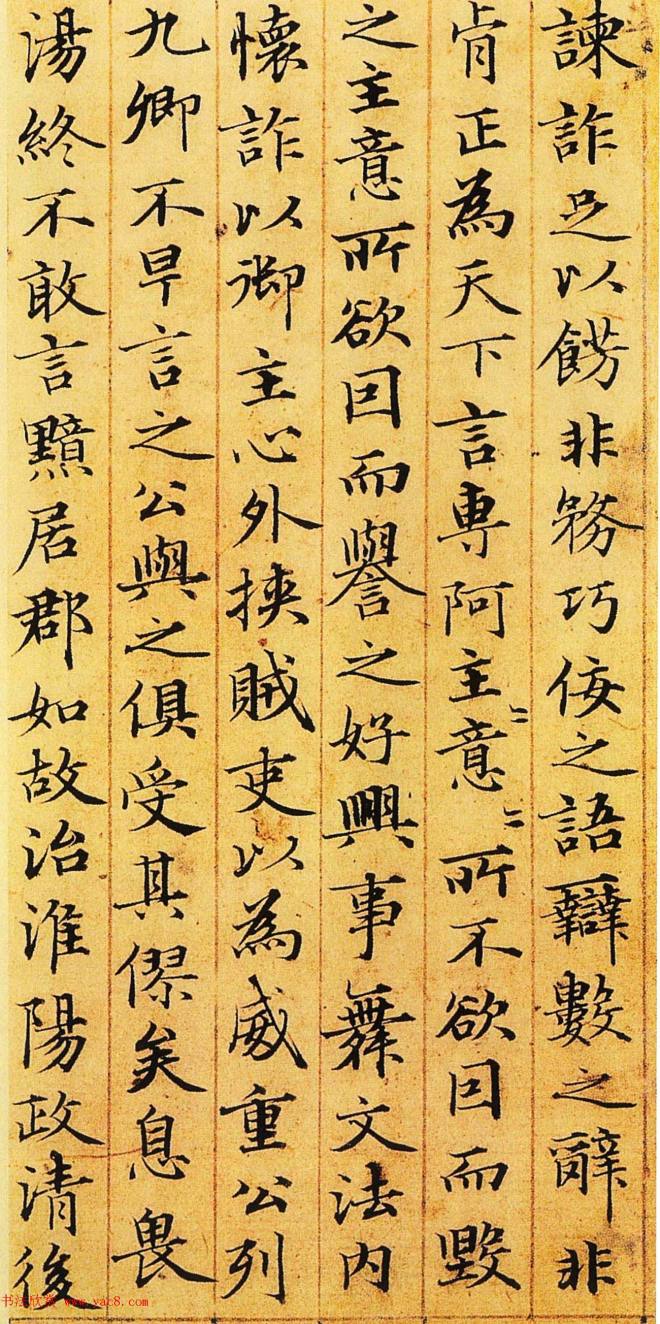 諫詐足以餝非務巧佞之語辯數之辭非
肯正為天下言專阿主意〻所不欲因而毀
之主意所欲因而譽之好興事舞文法內
懷詐以御主心外挾賊吏以為威重公列
九卿不早言之公與之俱受其僇矣息畏
湯終不敢言黯居郡如故治淮陽政清後
书法欣赏 www.yac8.com